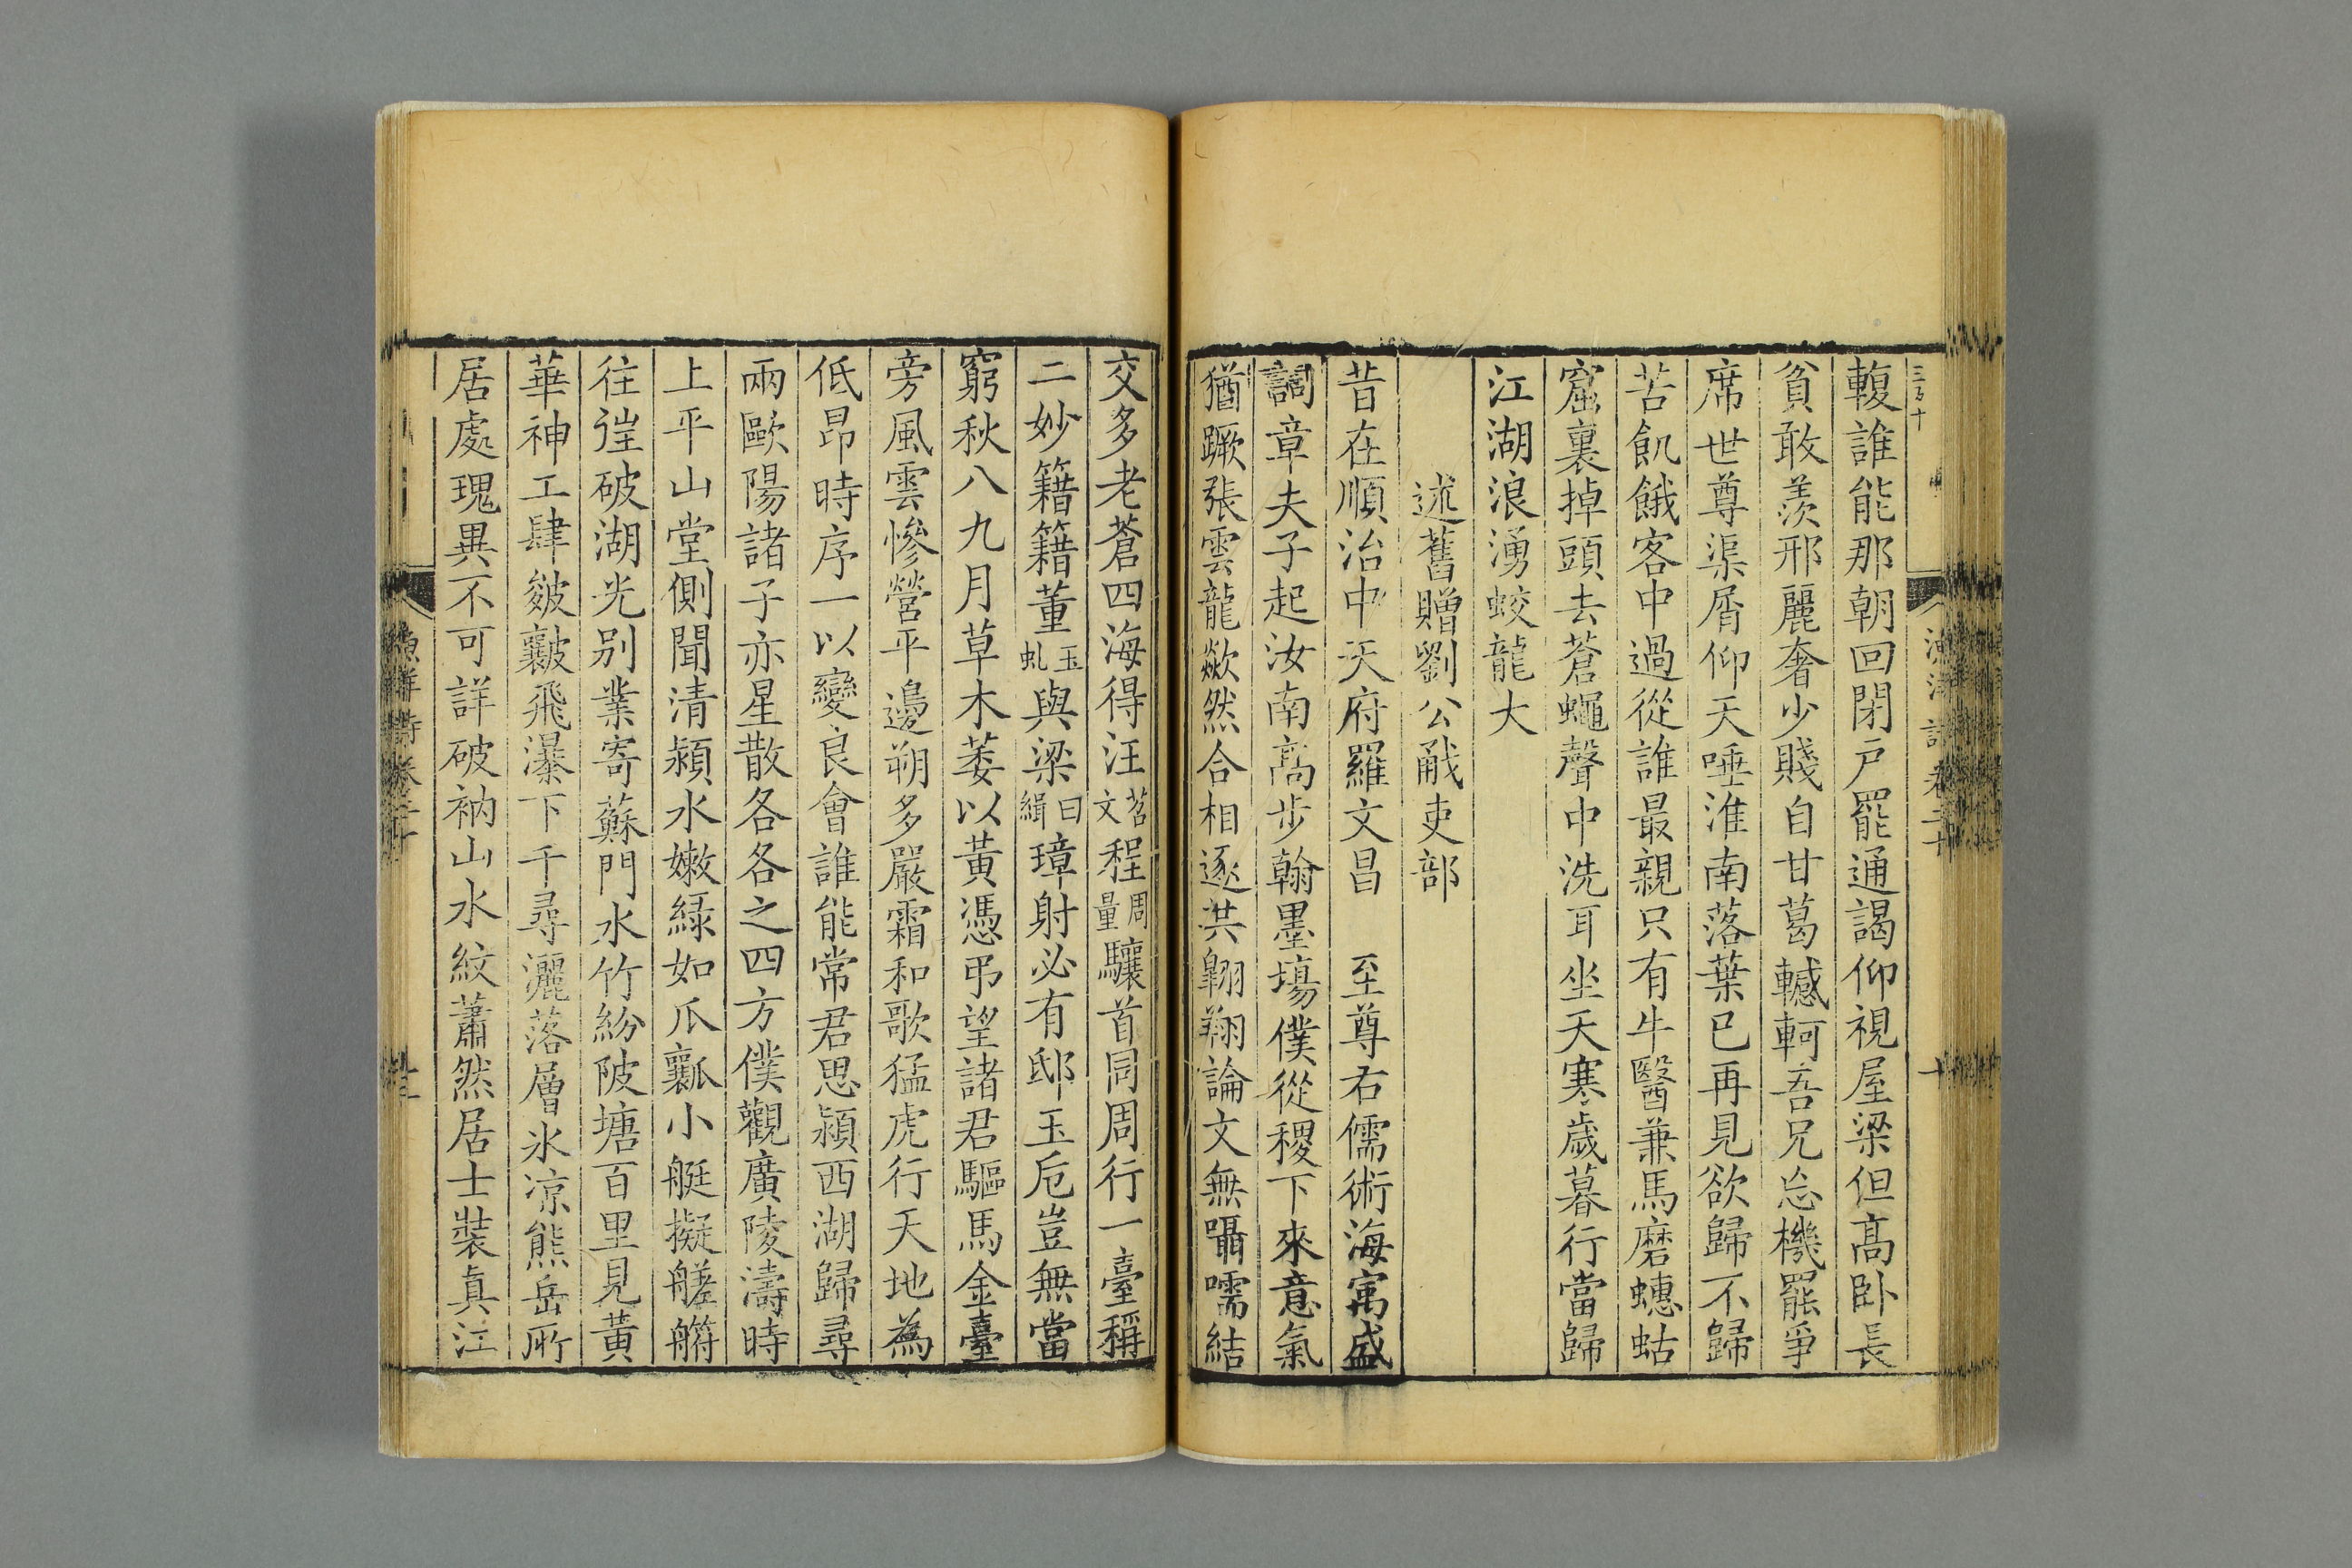 三百十
輹誰能那朝回閉戸罷通謁仰視屋梁但髙卧長
貧敢羡邢麗奢少賤自甘葛轗軻吾兄忘機罷爭
席世尊渠屑仰天唾淮南落葉已再見欲歸不歸
苦飢餓客中過從誰最親只有牛醫兼馬磨蟪蛄
窟裏掉頭去蒼蠅聲中洗耳坐天寒歲暮行當歸
江湖浪湧蛟龍大
述舊贈劉公㦷吏部
昔在順治中天府羅文昌　至尊右儒術海㝢盛
詞章夫子起汝南髙步翰墨塲僕從稷下來意氣
猶蹶張雲龍歘然合相逐共翺翔論文無囁嚅結
交多老蒼四海得汪苕文程周量驤首同周行一臺稱
二妙籍籍董玉虬與梁曰緝璋射必有邸玉卮豈無當
窮秋八九月草木萎以黃憑弔望諸君驅馬金臺
旁風雲慘營平邊朔多嚴霜和歌猛虎行天地為
低昂時序一以變良會誰能常君思潁西湖歸尋
兩歐陽諸子亦星散各各之四方僕觀廣陵濤時
上平山堂側聞清潁水嫩緑如瓜瓤小艇擬艖艄
往往破湖光别業寄蘇門水竹紛陂塘百里見黃
華神工肆皴㱇飛瀑下千尋灑落層氷凉熊岳所
居處瑰異不可詳破衲山水紋蕭然居士裝真江
漁洋詩卷二十